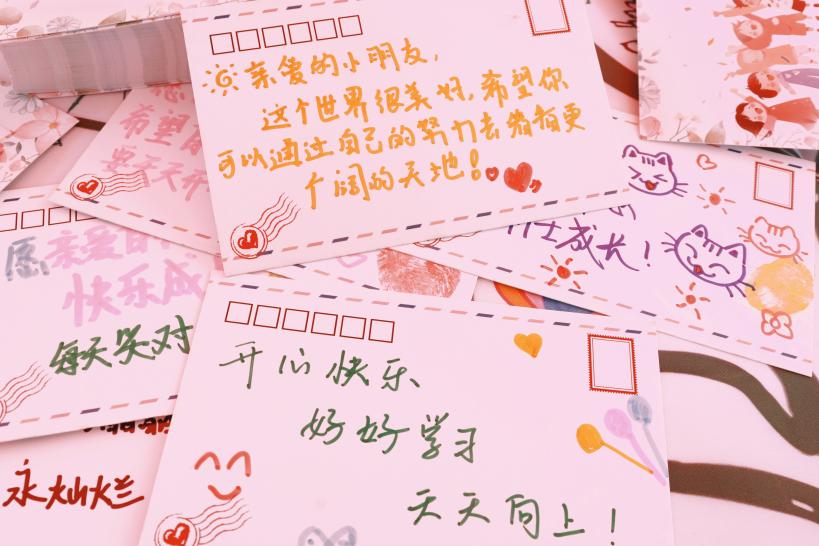 亲爱的小朋友,
这个世界很美好,希望你
可以通过自己的努力去看看更
广阔的天地!
希望
每天开
愿亲爱的
快乐成
每天笑对
成长!
开心快乐
好好学习
天天向上!
永灿烂